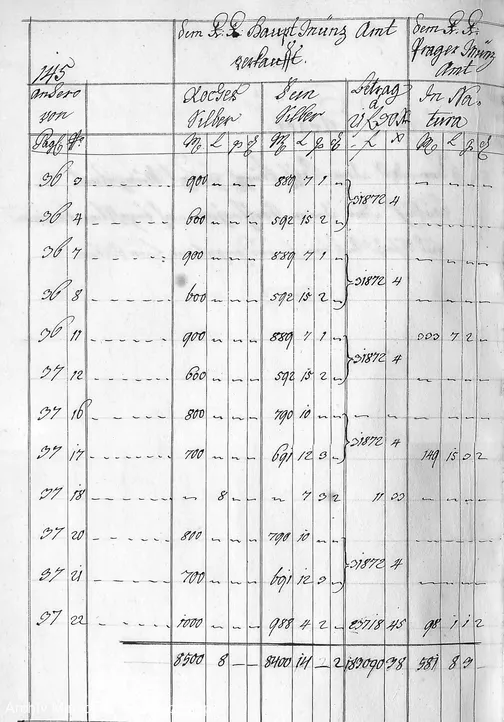 dem K. K. Haupt Münz Amt verkauft.
dem K. K. Prager Münz Amt
145
anhero von
Loches Silber
Fein Silber
Betrag
In Natura
Pag No M L q M L q f x M L q
36 3 900 889 7 1
36 4 600 592 15 2
31872 4
36 7 900 889 7 1
36 8 600 592 15 2
31872 4
36 11 900 889 7 1 333 7 2
37 12 600 592 15 2
31872 4
37 16 800 790 10
37 17 700 691 12 3 149 15 3 2
31872 4
37 18 8 7 3 2 11 33
37 20 800 790 10
37 21 700 691 12 3
31872 4
37 22 1000 988 4 2 23718 45 98 1 1 2
8500 8 8400 14 2 183090 38 581 8 3